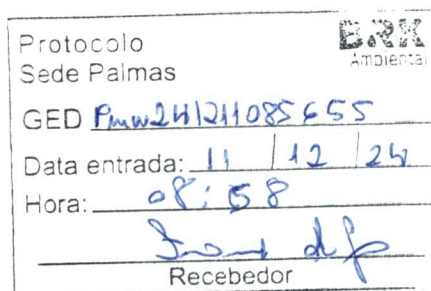 Protocolo BRK
Sede Palmas Ambiental
GED Pmw241211085655
Data entrada: 11 / 12 / 24
Hora: 08:58
Recebedor